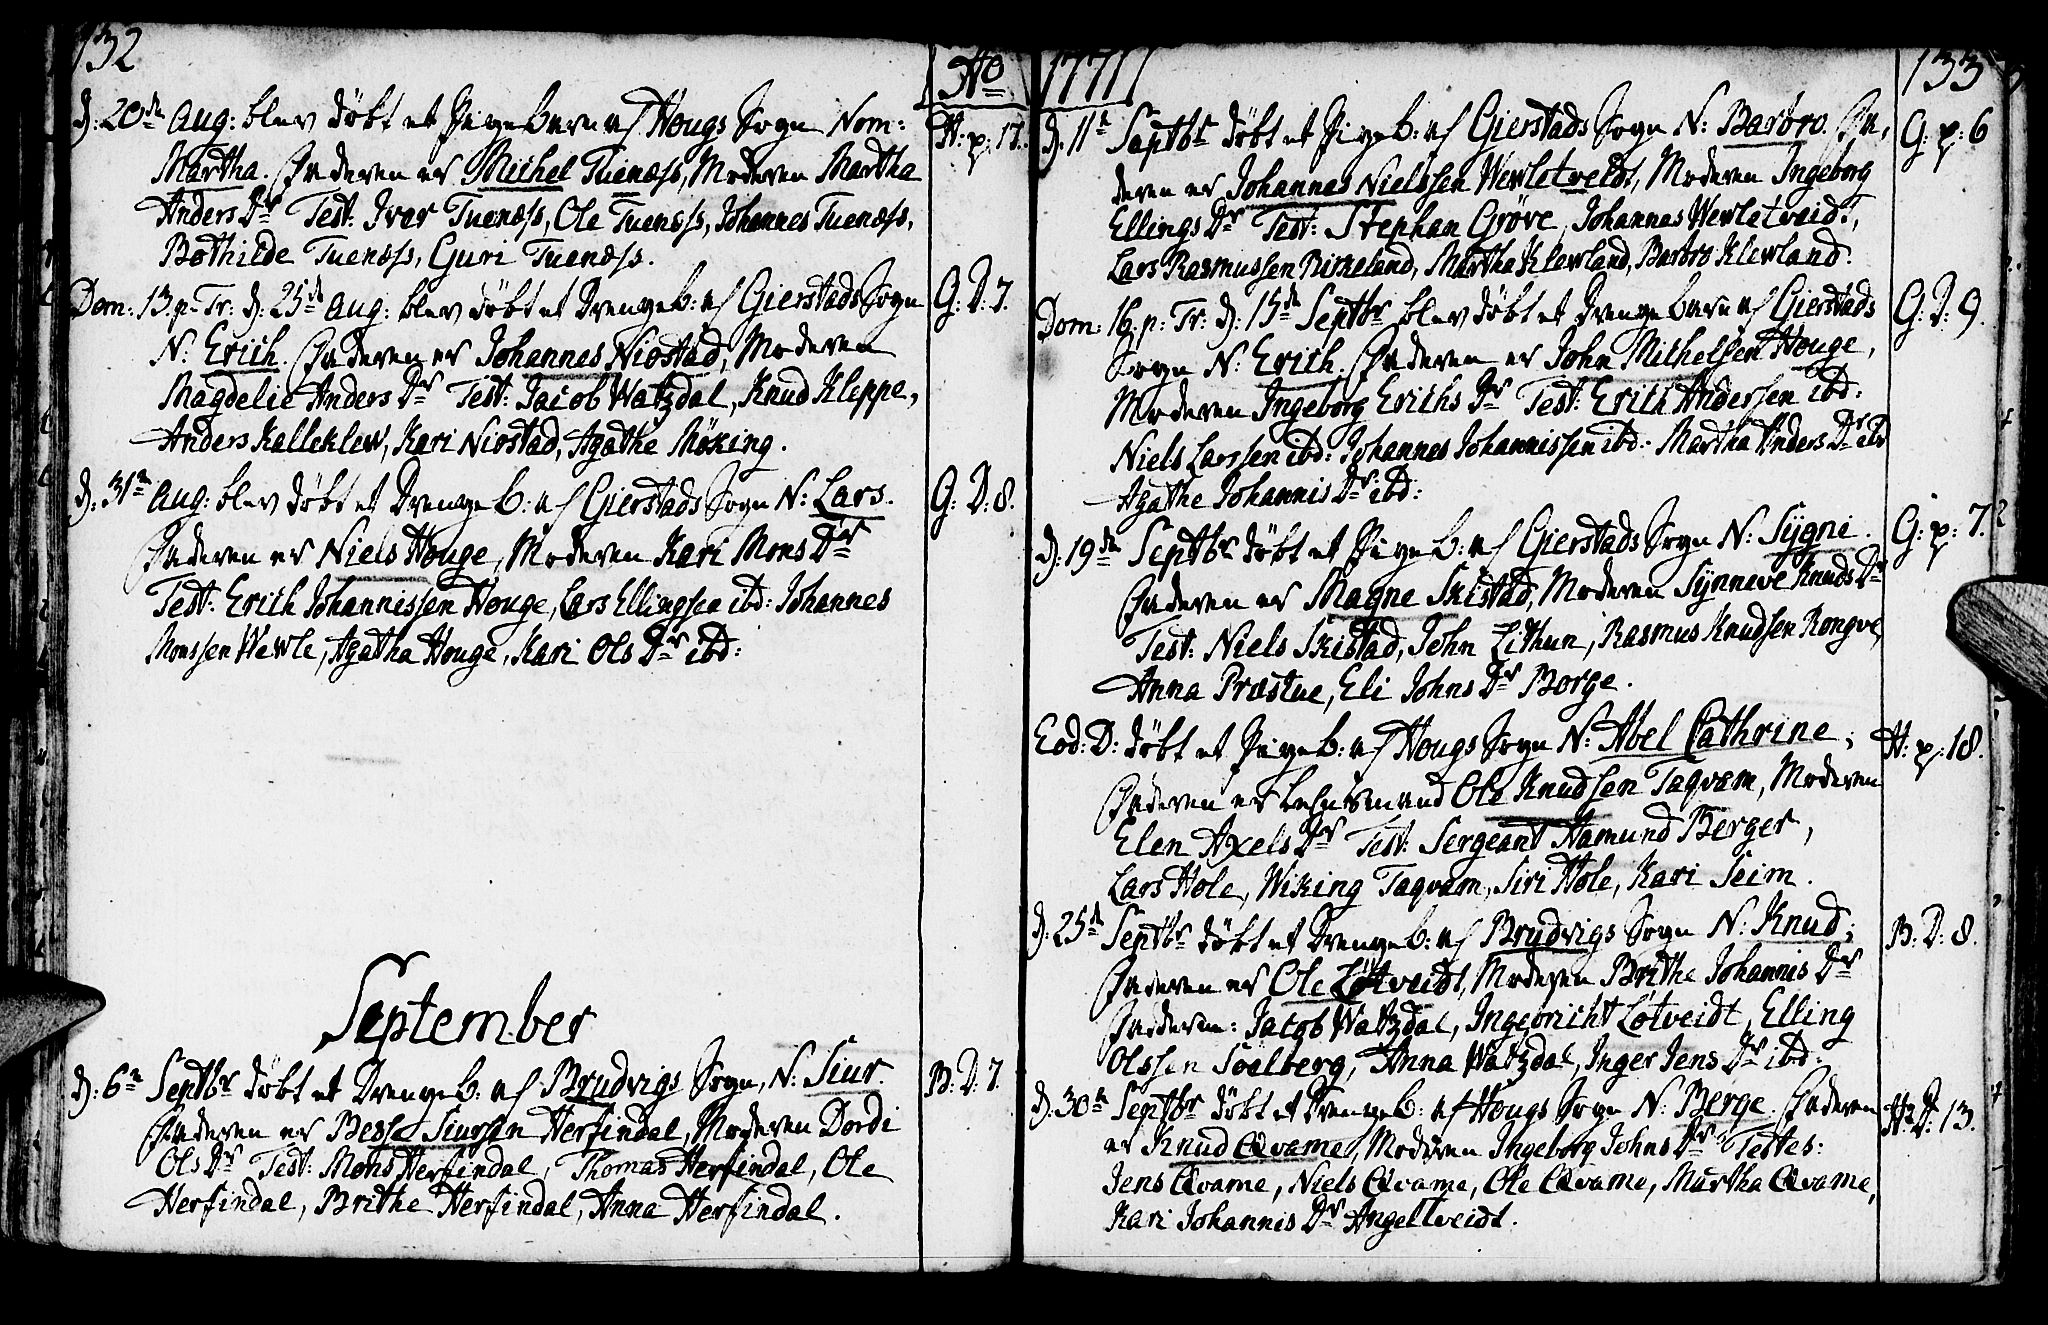 132
Ao
d: 20de Aug: blev døbt et Pigebarn af Hougs Sogn Nom:
H. p. 17.
Martha. Faderen er Michel Tuenæss, Moderen Martha
Anders Dr Test: Ivar Tuenæss, Ole Tuenæss, Johannes Tuenæss,
Bothilde Tuenæss, Guri Tuenæss.
Dom: 13. p. Tr: d: 25de Aug: blev døbt et Drengeb: af Gierstads Sogn
G: D: 7.
N: Erich. Faderen er Johannes Niostad, Moderen
Magdelie Anders Dr Test: Jacob Watzdal, Knud Kleppe,
Anders Kalleklew, Kari Niostad, Agathe Möking.
d: 31te Aug: blev døbt et Drengeb: af Gierstads Sogn N: Lars.
G: D: 8.
Faderen er Niels Houge, Moderen Kari Mons Dr
Test: Erich Johannissen Houge, Lars Ellingsen ibd: Johannes
Monssen Wewle, Agatha Houge, Kari Ols Dr ibd:
September
d: 6te Septbr døbt et Drengeb: af Brudvigs Sogn, N: Siur.
B: D: 7.
Faderen er Besse Siursen Herfindal, Moderen Dordi
Ols Dr Test: Mons Herfindal, Thomas Herfindal, Ole
Herfindal, Brithe Herfindal, Anna Herfindal.
1771
133
d: 11te Septbr døbt et Pigeb: af Gierstads Sogn N: Barbro. Fa-
G: p: 6
deren er Johannes Nielssen Wewletveidt, Moderen Ingeborg
Ellings Dr Test: Stephan Gröve, Johannes Wewletveidt,
Lars Rasmussen Birkeland, Martha Klewland, Barbro Klewland.
Dom: 16. p: Tr: d: 15de Septbr blev døbt et Drengebarn af Gierstads
G: D: 9.
Sogn N: Erich. Faderen er John Michelsen Houge,
Moderen Ingeborg Erichs Dr Test: Erich Andersen ibd:
Niels Larssen ibd: Johannes Johannissen ibd: Martha Anders Dr ibd
Agathe Johannis Dr ibd:
d: 19de Septbr døbt et Pigeb: af Gierstads Sogn N: Sygni.
G: p: 7.
Faderen er Magne Skistad, Moderen Synneve Knuds Dr
Test: Niels Skistad, John Lithun, Rasmus Knudsen Rongve,
Anna Præstue, Eli Johns Dr Borge.
Eod: D: døbt et Pigeb: af Hougs Sogn N: Abel Cathrine,
H: p: 18.
Faderen er Lehnsmand Ole Knudsen Taqvam, Moderen
Elen Axels Dr Test: Sergeant Hamund Berger,
Lars Hole, Wiking Taqvam, Siri Hole, Kari Seim.
d: 25de Septbr døbt et Drengeb: af Brudvigs Sogn N: Knud,
B: D: 8.
Faderen er Ole Lötveidt, Moderen Brithe Johannis Dr
Fadderen: Jacob Watzdal, Ingebricht Lötveidt, Elling
Olssen Soelberg, Anna Watzdal, Inger Jens Dr ibd:
d: 30te Septbr døbt et Drengeb: af Hougs Sogn N: Berge. Faderen
H: D: 13.
er Knud Qvame, Moderen Ingeborg Johns Dr Testes:
Jens Qvame, Niels Qvame, Ole Qvame, Martha Qvame,
Kari Johannis Dr Angeltveidt.